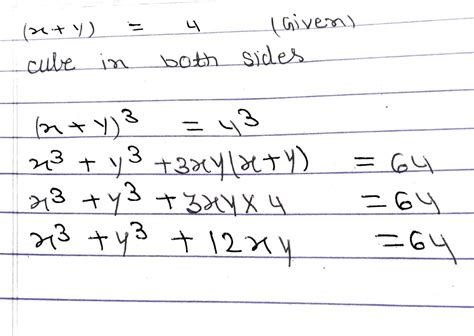 (x + y) = 4 (Given)
cube in both sides
(x + y)³ = 4³
x³ + y³ + 3xy(x+y) = 64
x³ + y³ + 3xy × 4 = 64
x³ + y³ + 12xy = 64